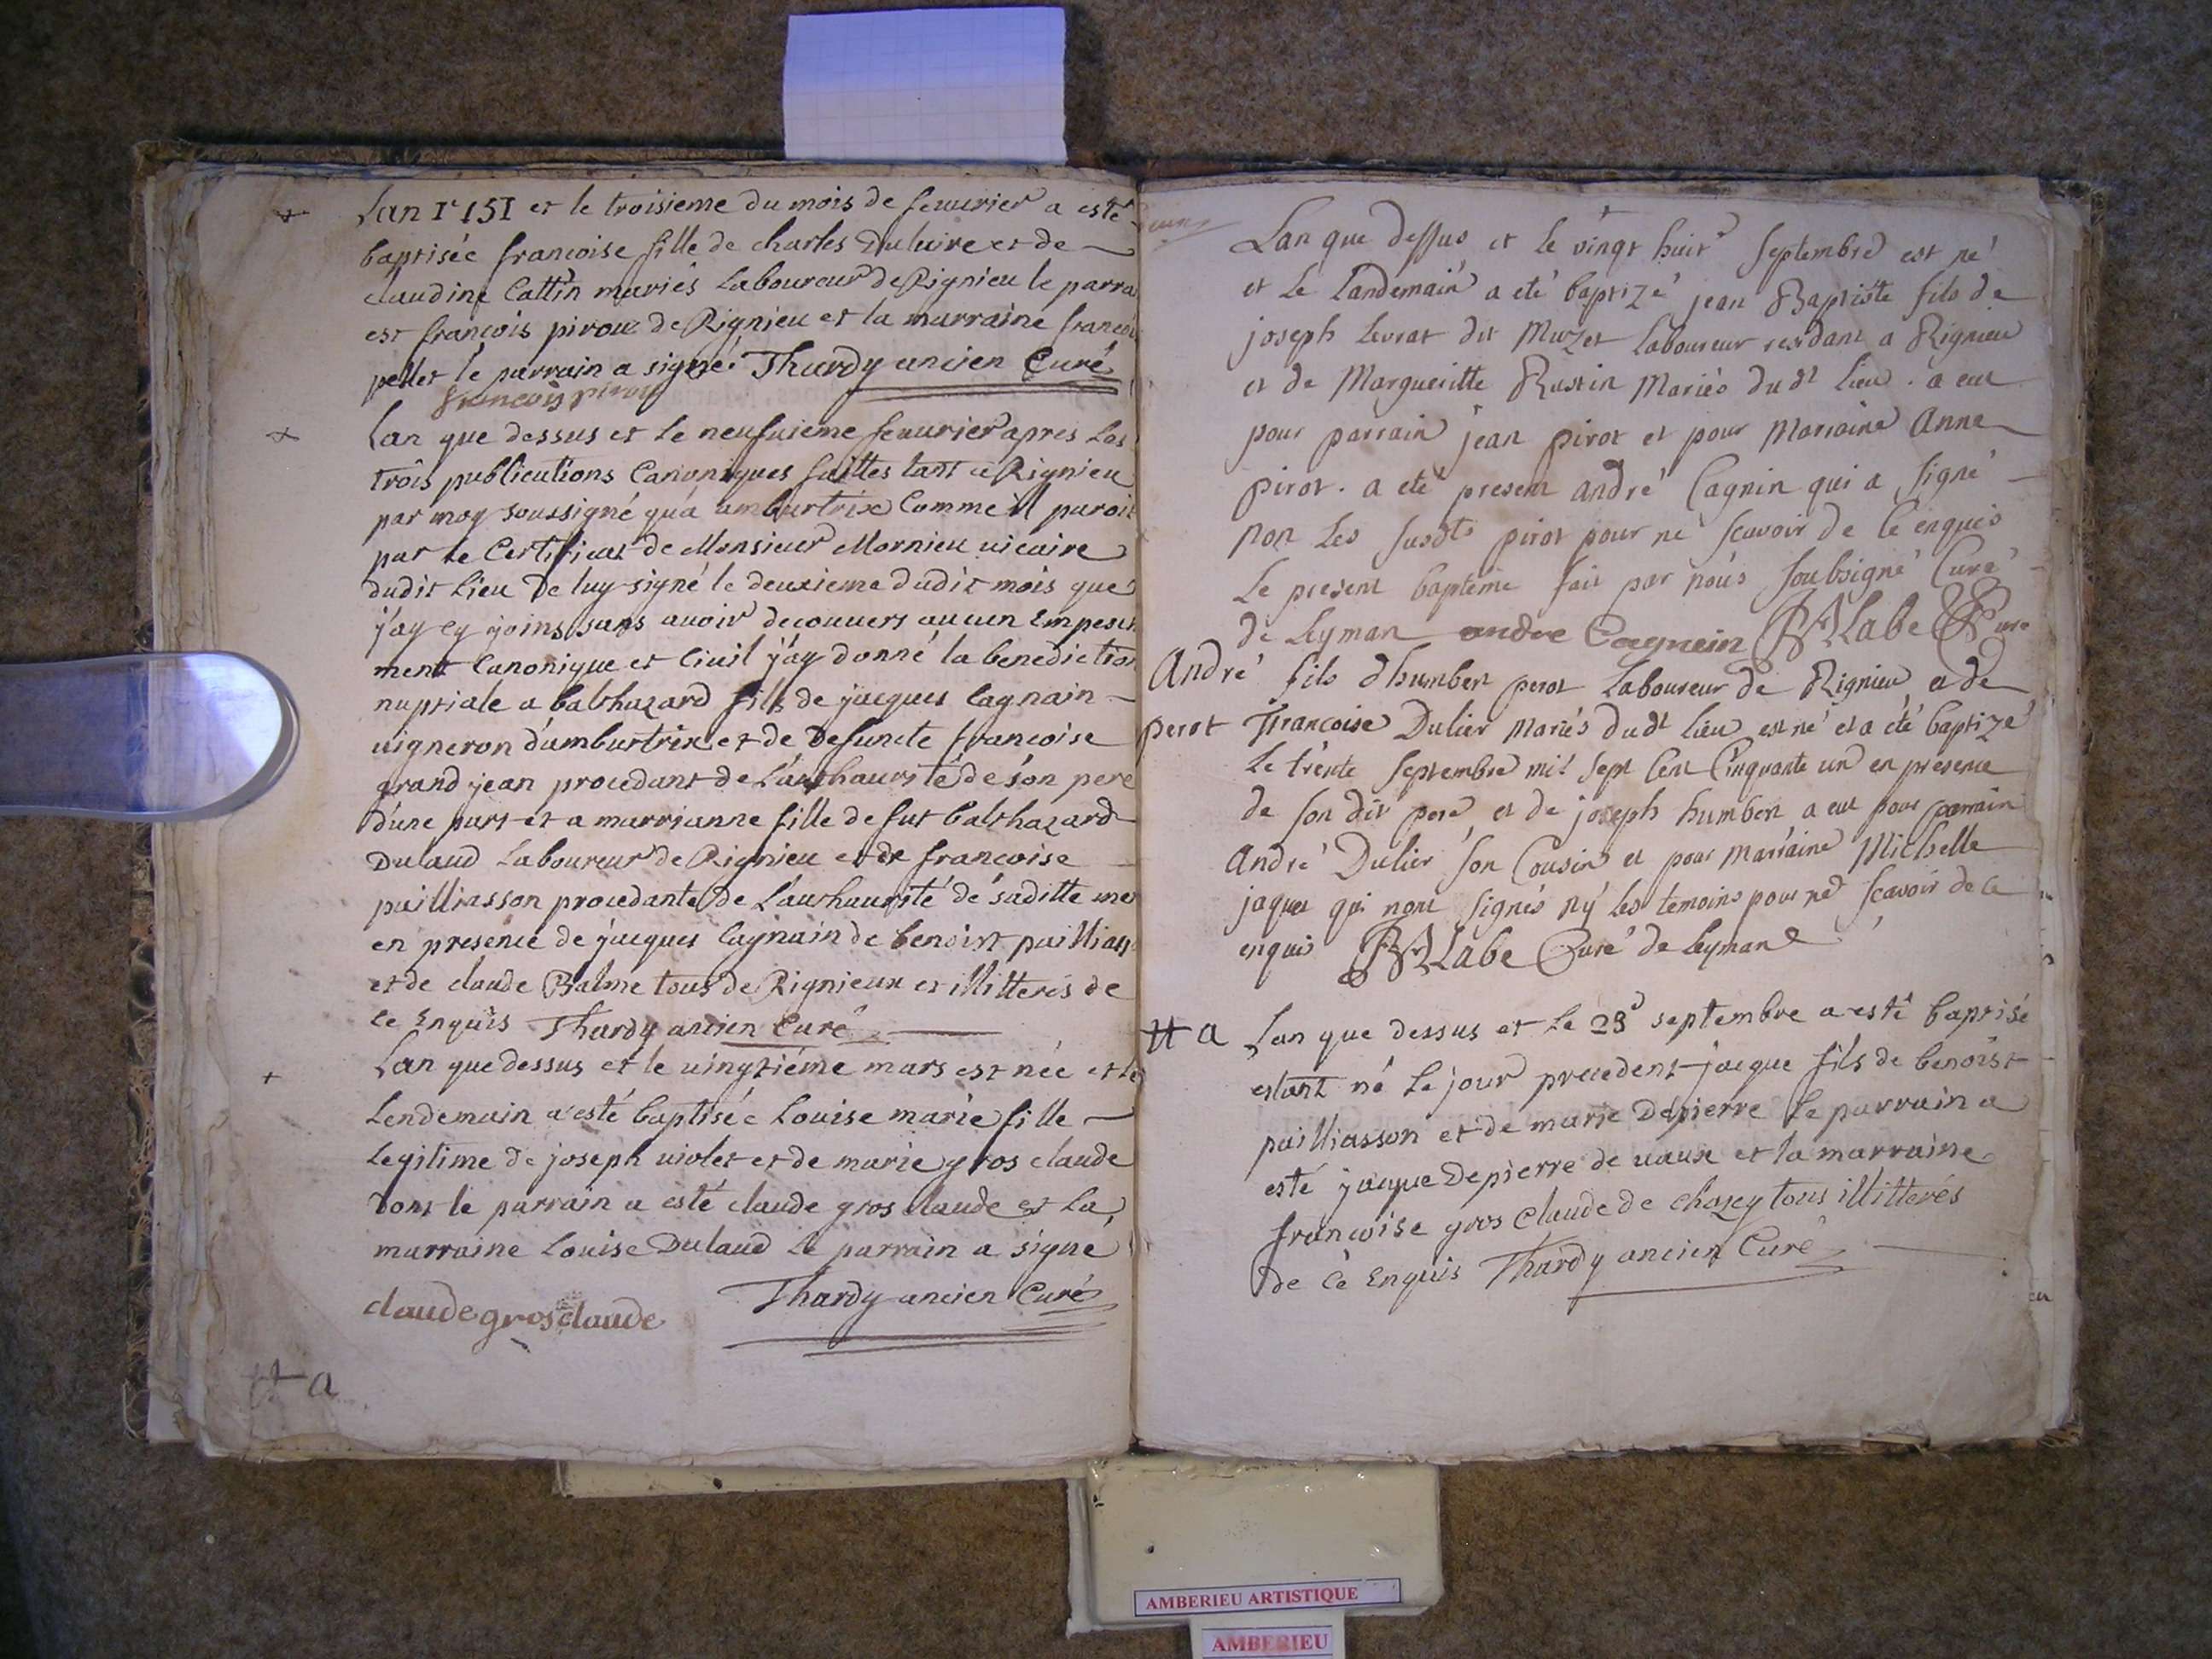 Lan 1751 et le troisieme du mois de feuurier a esté
baptisée francoise fille de charles Duluire et de
claudine Cattin mariés Laboureur de Rignieu le parra
est francois pirou de Rignieu et la marraine francoi
pellet le parrain a signé. Thardy ancien Curé
francois pirou
Lan que dessus et le neufuieme feuurier apres les
trois publications Canoniques faittes tant a Rignieu
par moy soussigné qu'a amburtrix Comme il paroit
par le Certificat de Monsieur Mornieu uicaire
dudit Lieu de luy signé le deuxieme dudit mois que
j'ay cy joins sans auoir decouuers aucun Empesch
ment Canonique et Ciuil j'ay donné la benediction
nuptiale a balthazard fils de jacques Cagnain
uigneron d'amburtrix et de Defuncte francoise
grand jean procedant de L'authaurité de son pere
d'une part et a marrianne fille de fut balthazard
Dulaud Laboureur de Rignieu et de francoise
pailliasson procedante de L'authaurité de saditte mer
en presence de jacques Cagnain de benoist pailliass
et de claude Balme tous de Rignieux et illitterés de
ce Enquis Thardy ancien Curé
Lan que dessus et le uingtiéme mars est née et le
Lendemain a esté baptisée Louise marie fille
Legitime de joseph uiolet et de marie gros claude
dont le parrain a esté claude gros claude et La
marraine Louise Dulaud Le parrain a signé
claude gros claude Thardy ancien Curé
a
Lan que dessus et le vingt huit septembre est né
et le Landemain a eté baptizé jean Baptiste fils de
joseph Levrat dit Muzet Laboureur residant a Rignieu
et de Margueritte Rustin Mariés dudt lieu. a eut
pour parrain jean pirot et pour Marraine Anne
pirot. a eté present andré Cagnin qui a signé
non les susdts pirot pour ne scavoir de ce enquis
Le present baptême fait par nous soubsigné Curé
de Leyman andre Cagnein Labe Curé
André fils dhumbert perot Laboureur de Rignieu, et de
perot francoise Dulier Mariés dudt lieu est né et a été baptizé
Le trente septembre mil sept Cent Cinquante un en presence
de son dit pere et de joseph humbert a eut pour parrain
André Dulier son Cousin et pour Marraine Michelle
jaquet qui n'ont signés ny les temoins pour ne scavoir de ce
enquis Labe Curé de Leyman
a Lan que dessus et Le 28e septembre a esté baptisé
estant né Le jour precedent jacque fils de benoist
pailliasson et de marie Depierre Le parrain a
esté jacque Depierre de uaux et la marraine
francoise gros Claude de chazey tous illitterés
de ce Enquis Thardy ancien Curé
AMBERIEU ARTISTIQUE
AMBERIEU